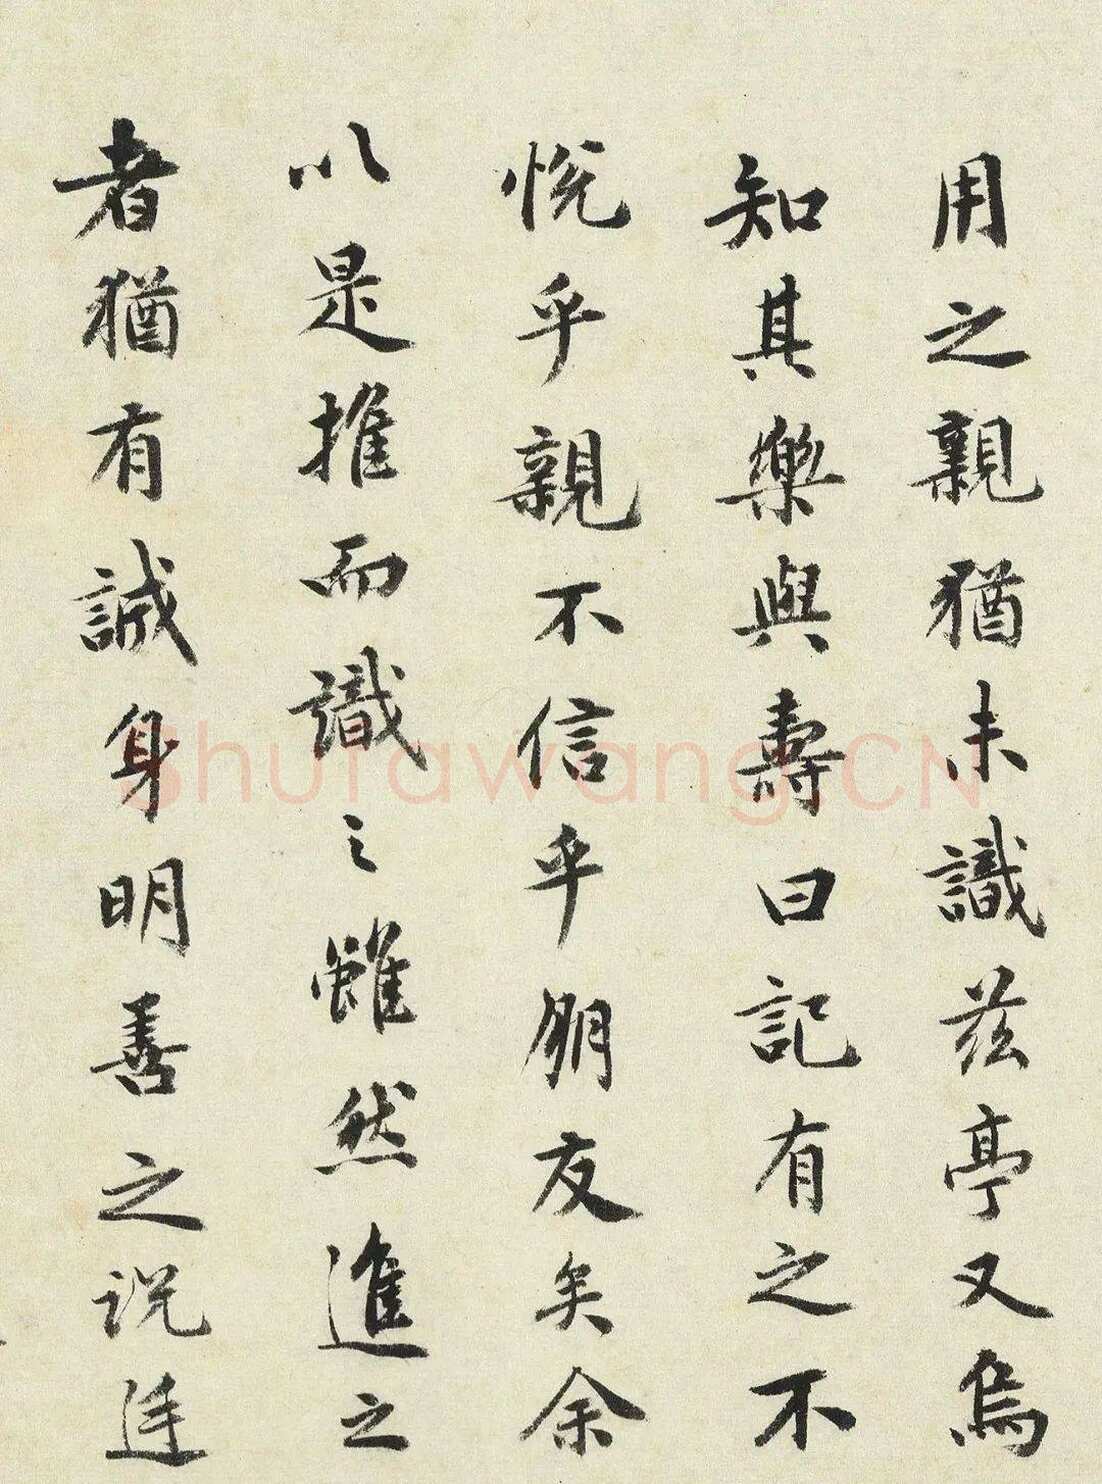 用之親猶未識茲亭又烏
知其樂與壽曰記有之不
悅乎親不信乎朋友矣余
以是推而識之雖然進之
者猶有誠身明善之說廷
Shufawang.CN